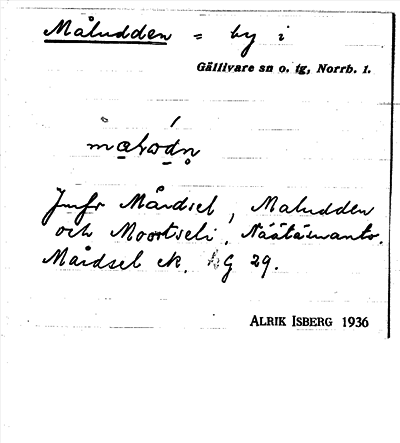 Måludden = by i
Gällivare sn o. tg, Norrb. l.
Jmfr Mårdsel, Maludden
och Moortseli, Näätäsuanto.
Mårdsel ek. G 29.
ALRIK ISBERG 1936